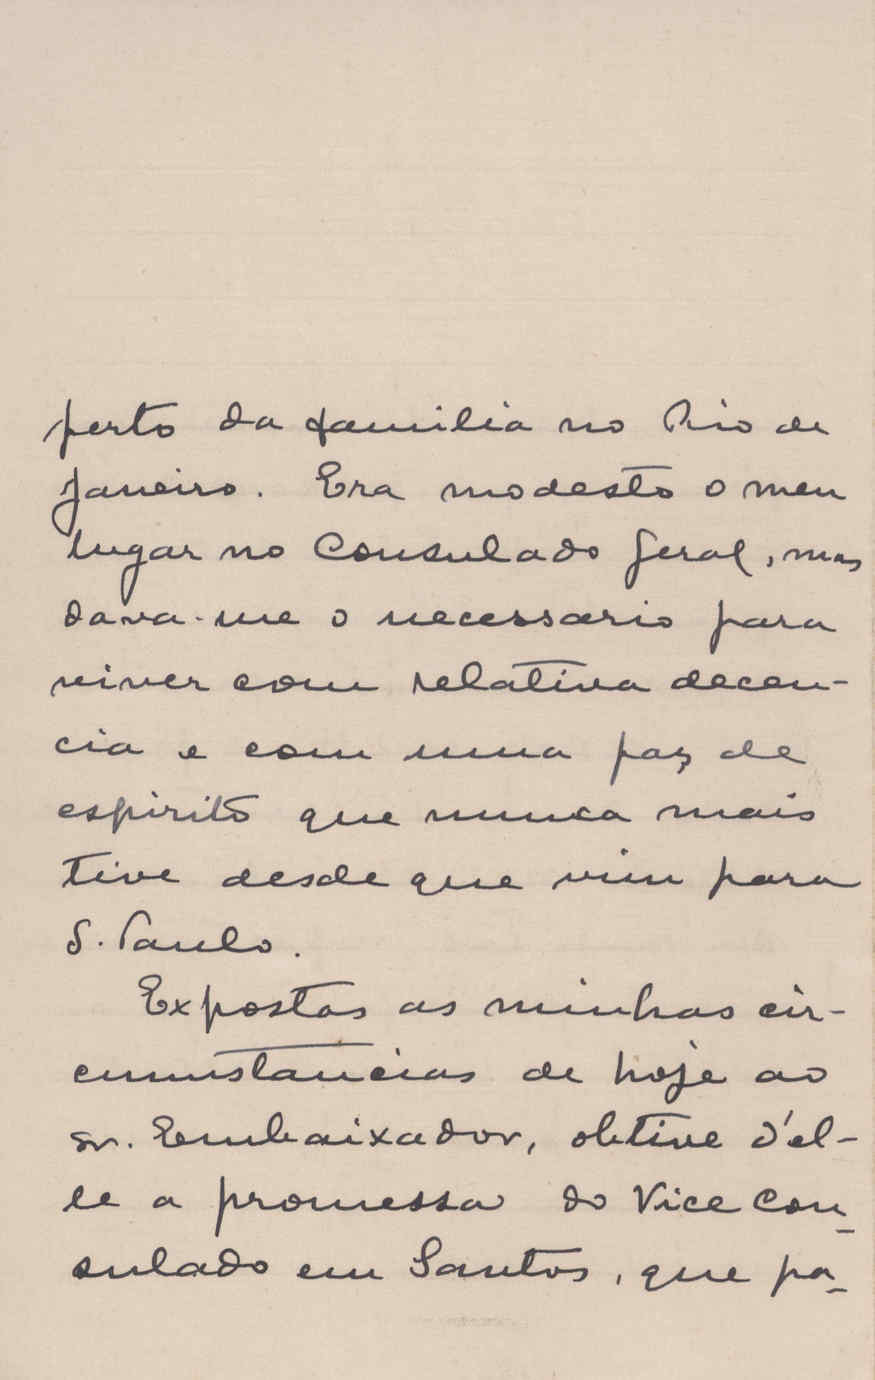 perto da familia no Rio de
Janeiro. Era modesto o meu
lugar no Consulado Geral, mas
dava-me o necessario para
viver com relativa decen-
cia e com uma paz de
espirito que nunca mais
tive desde que vim para
S. Paulo.
Expostas as minhas cir-
cumstancias de hoje ao
sr. Embaixador, obtive d'el-
le a promessa do Vice Con-
sulado em Santos, que pa-